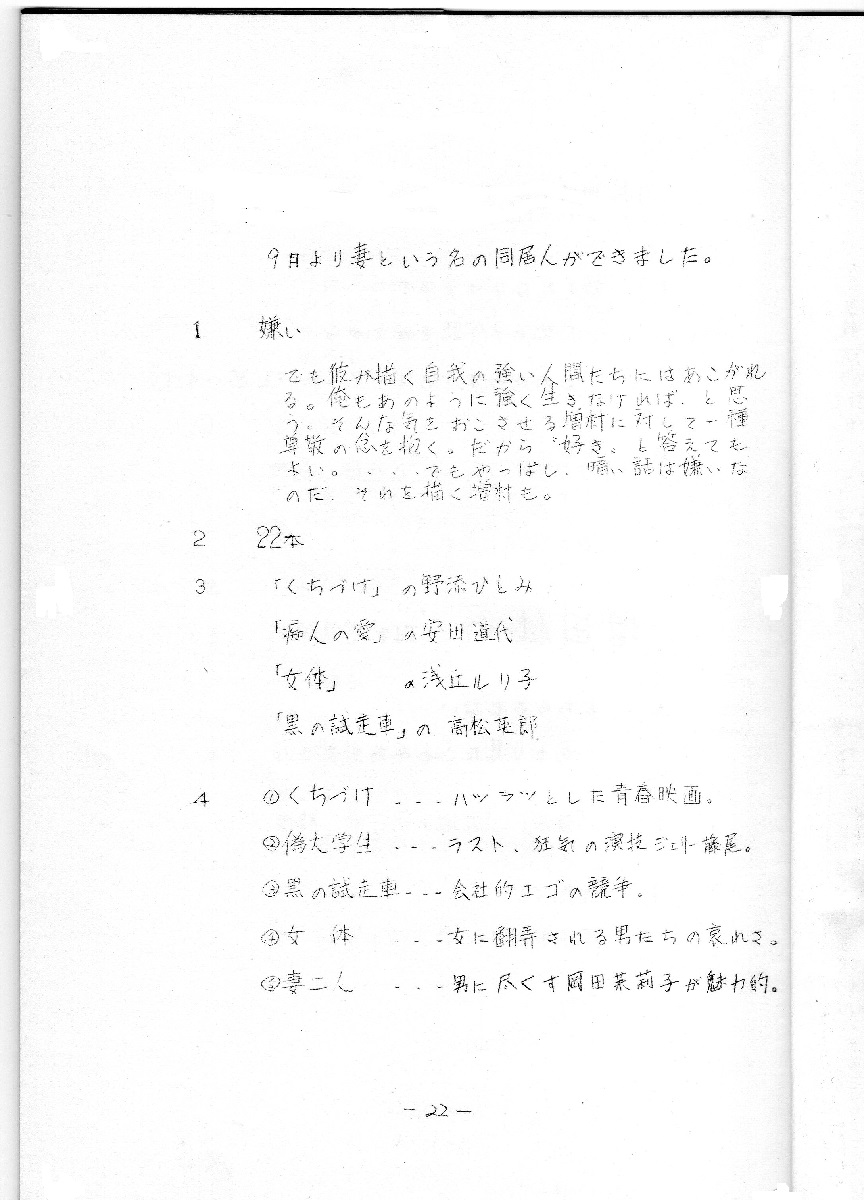 9月より妻という名の同居人ができました。
1 嫌い
でも彼が描く自我の強い人間たちにはあこがれ
る。俺もあのように強く生きなければ、と思
う。そんな気をおこさせる増村に対して一種
尊敬の念を抱く。だから“好き”と答えても
よい。・・・でもやっぱし、暗い話は嫌いな
のだ、それを描く増村も。
2 22本
3 「くちづけ」の野添ひとみ
「痴人の愛」の安田道代
「女体」 の浅丘ルリ子
「黒の試走車」の 高松英郎
4 ①くちづけ ・・・ハツラツとした青春映画。
②偽大学生 ・・・ラスト、狂気の演技ジェリー藤尾。
③黒の試走車・・・会社的エゴの競争。
④女 体 ・・・女に翻弄される男たちの哀れさ。
⑤妻二人 ・・・男に尽くす岡田茉莉子が魅力的。
－22－